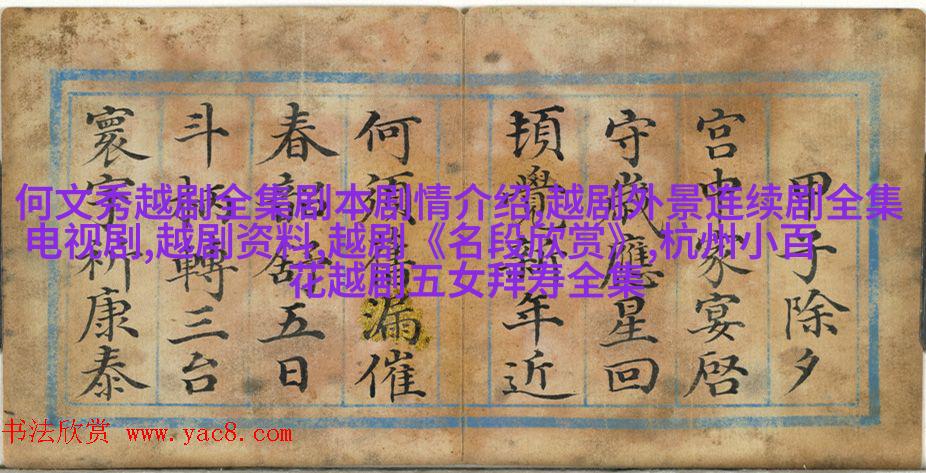 何文秀越剧全集剧本剧情介绍,越剧外景连续剧全集
电视剧,越剧资料,越剧《名段欣赏》,杭州小百
花越剧五女拜寿全集
甲子除夕
宫中家宴啓
守歲應星回
頓覺年近
何須漏催
春五日
斗柄轉三台
寰宇祈康泰
书法欣赏 www.yac8.com